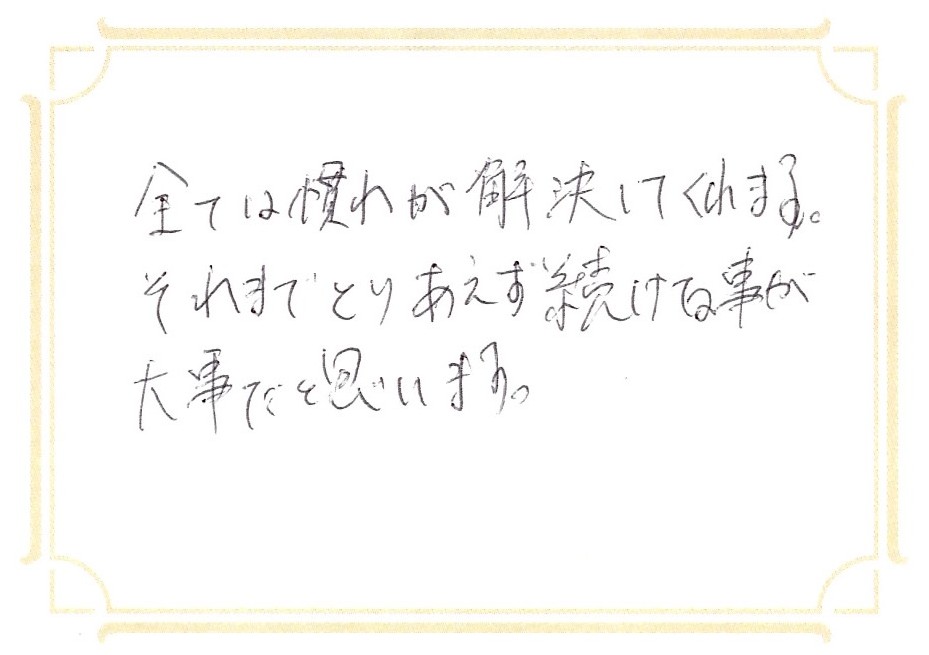 全ては慣れが解決してくれます。
それまでとりあえず続ける事が
大事だと思います。